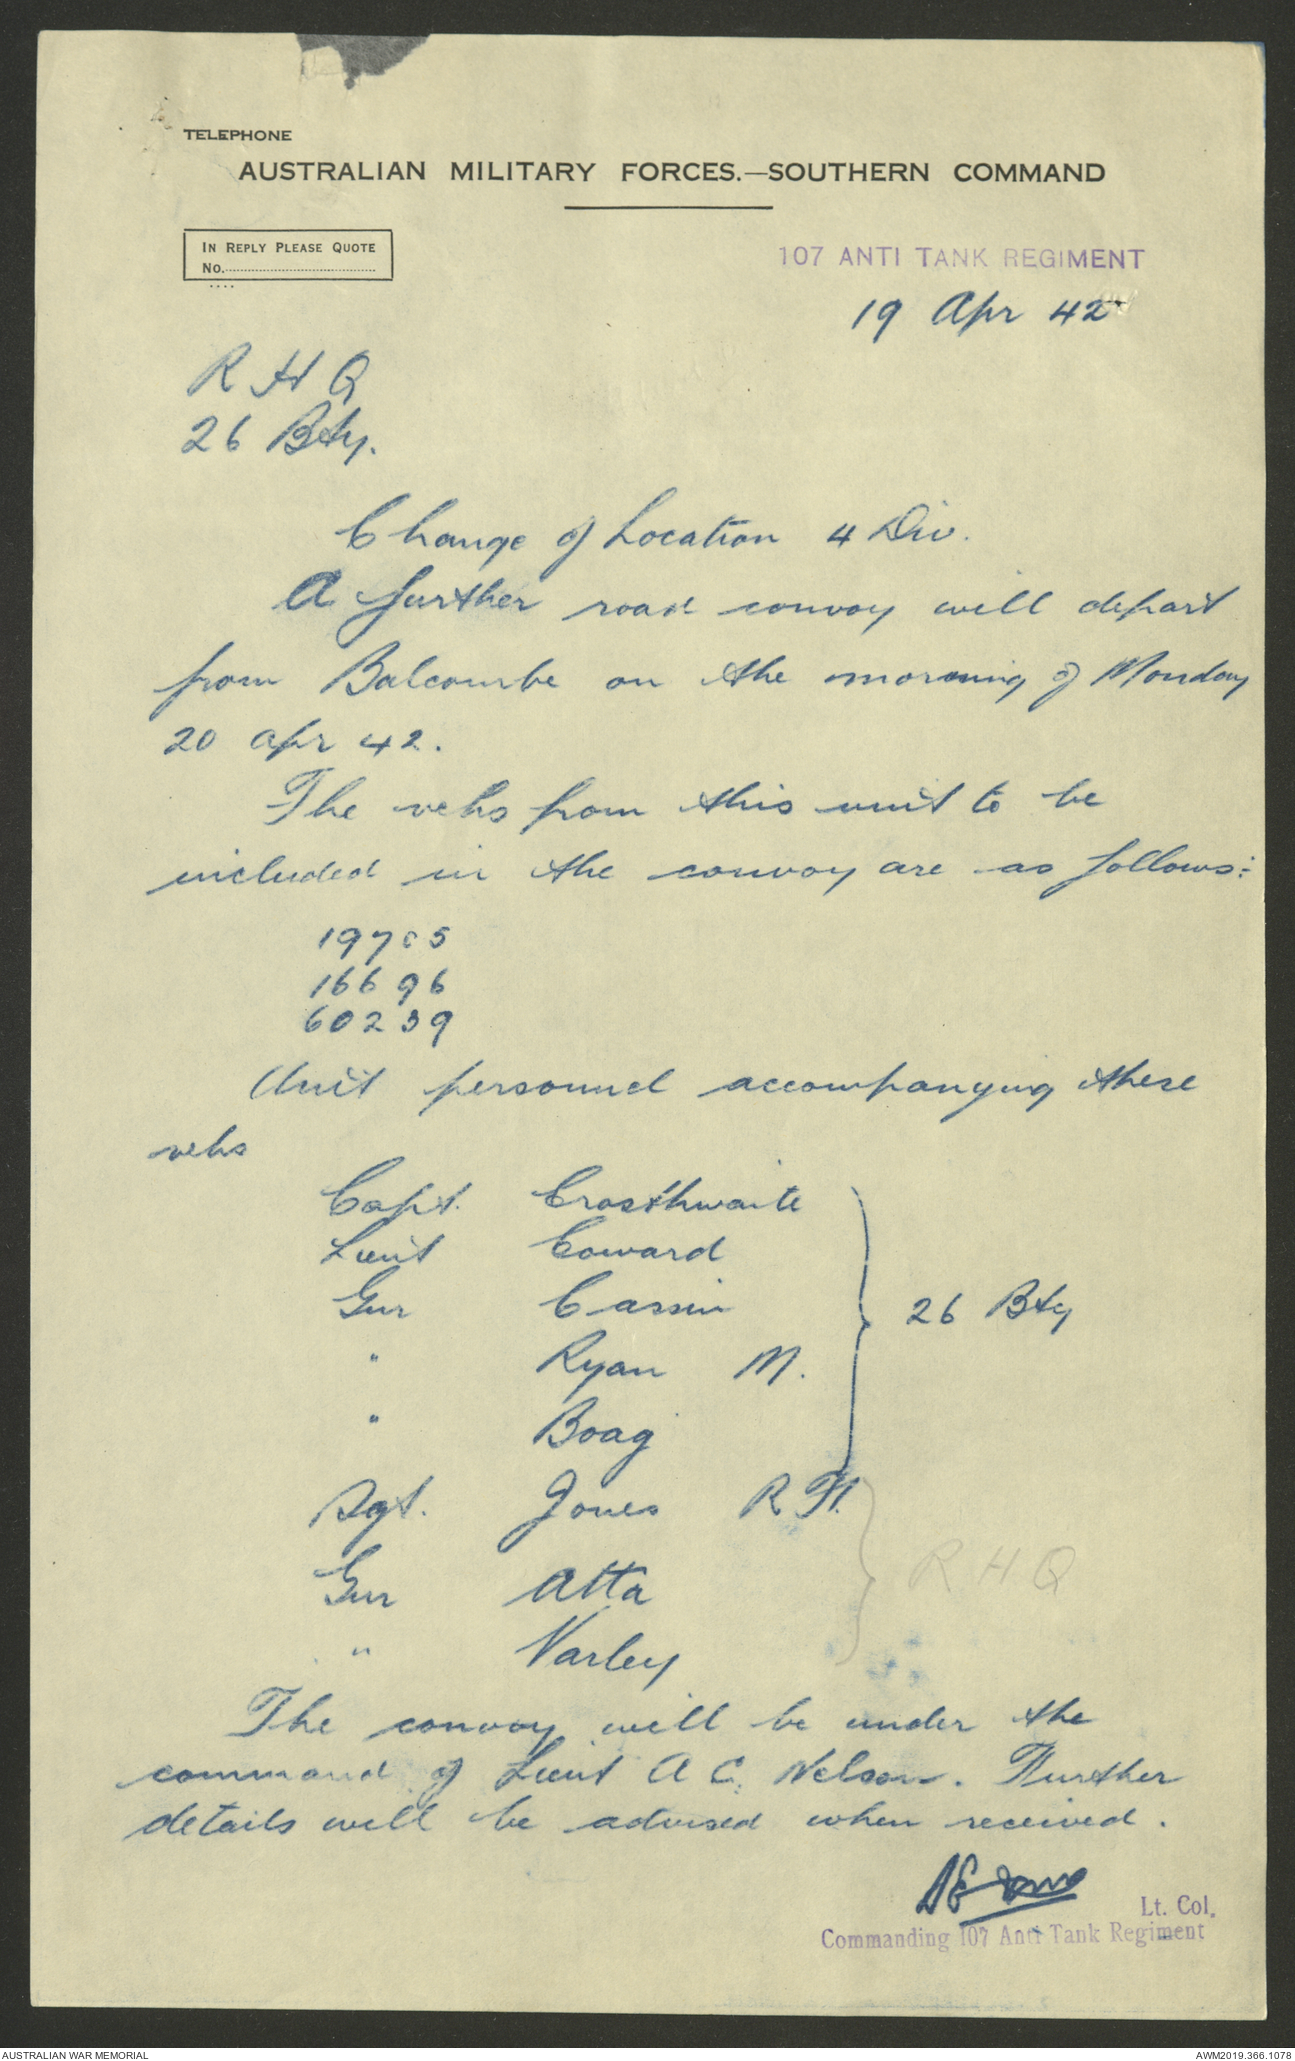 TELEPHONE
AUSTRALIAN MILITARY FORCES.—SOUTHERN COMMAND
IN REPLY PLEASE QUOTE
No.
107 ANTI TANK REGIMENT
19 Apr 42
R H Q
26 Bty.
Change of Location 4 Div.
A further road convoy will depart
from Balcombe on the morning of Monday
20 Apr 42.
The vehs from this unit to be
included in the convoy are as follows:
19705
16696
60239
Unit personnel accompanying these
vehs
Capt. Crosthwaite
Lieut Coward
Gnr Cassin
" Ryan M.
" Boag
26 Bty
Sgt. Jones R H.
Gnr Atta
" Varley
R H Q
The convoy will be under the
command of Lieut A C. Nelson. Further
details will be advised when received.
Lt. Col.
Commanding 107 Anti Tank Regiment
AUSTRALIAN WAR MEMORIAL
AWM2019.366.1078